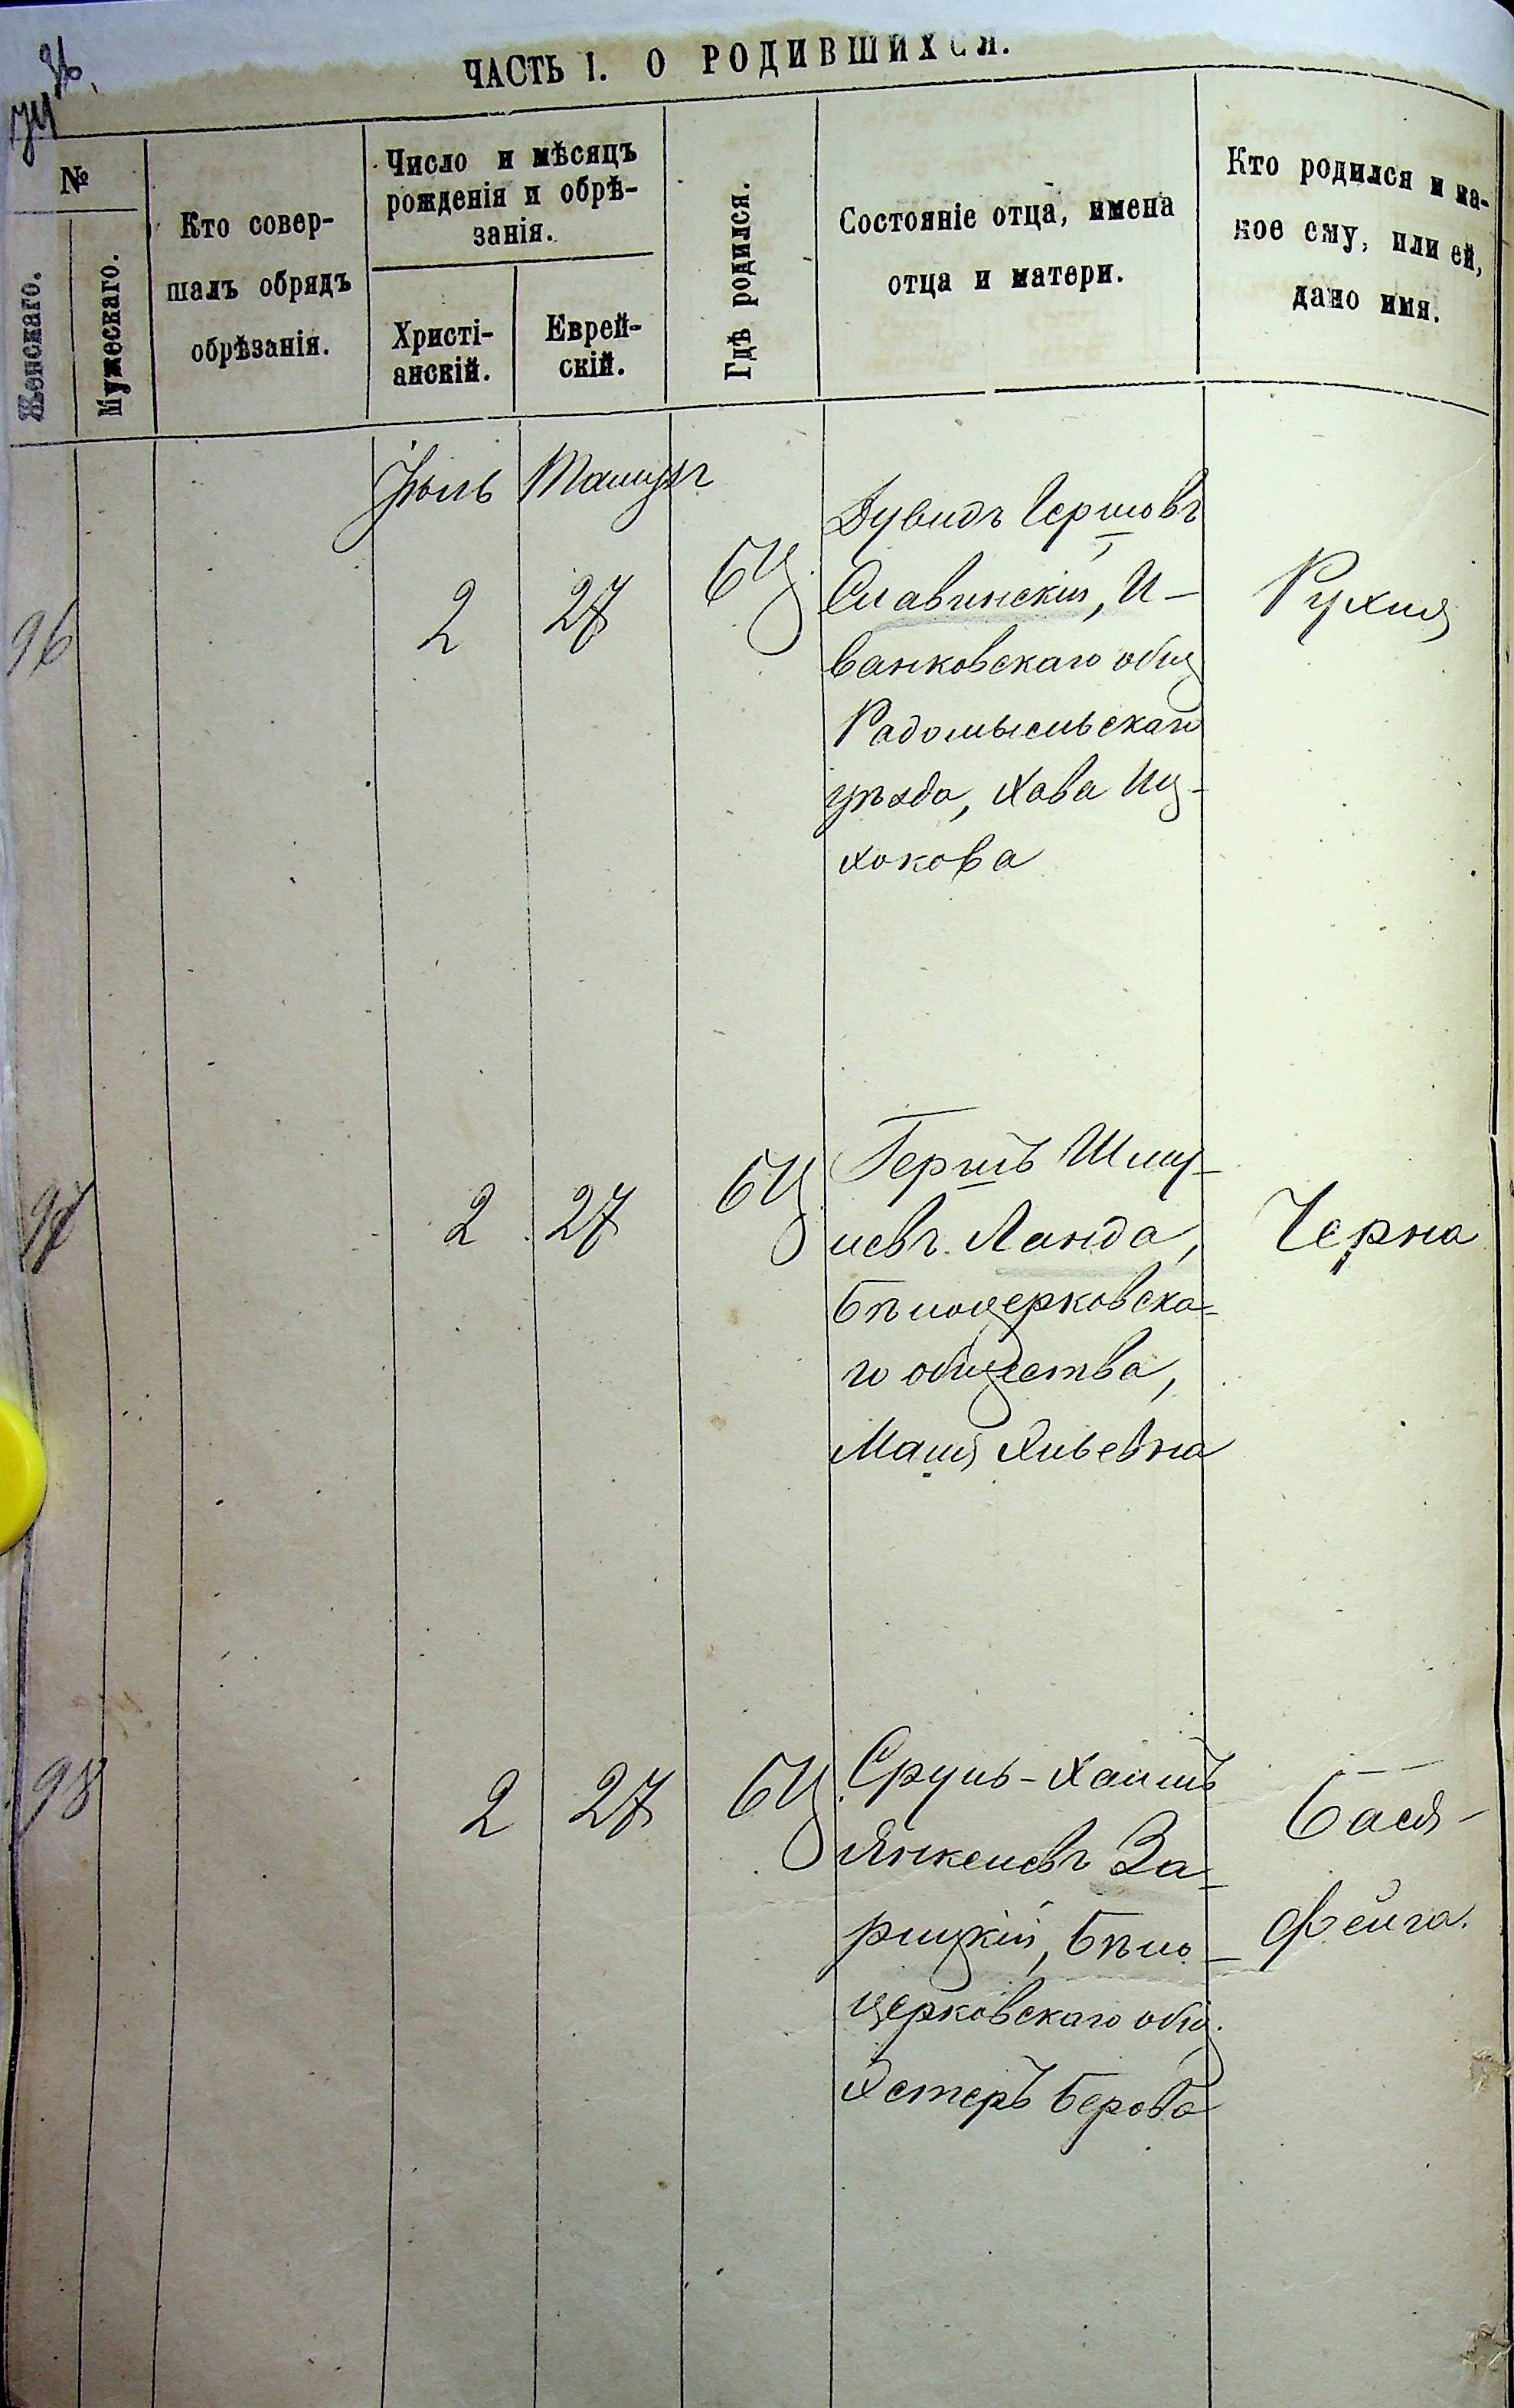 ЧАСТЬ I. О РОДИВШИХСЯ.
№
Женскаго.
Мужескаго.
Кто совер-
шалъ обрядъ
обрѣзанія.
Число и мѣсяцъ
рожденія и обрѣ-
занія.
Христі-
анскій.
Еврей-
скій.
Гдѣ родился.
Состояніе отца, имена
отца и матери.
Кто родился и ка-
кое ему, или ей,
дано имя.
Іюль Тамузъ
96 2 27 БЦ
Дувидъ Гершовъ
Славинскій, И-
ванковскаго общ
Радомысльскаго
уѣзда, Хава Иц-
хокова
Рухля
97 2 27 БЦ
Гершъ Шму-
левъ Ланда,
Бѣлоцерковска-
го общества,
Маня Эльевна
Черна
98 2 27 БЦ
Сруль-Хаимъ
Янкелевъ За-
рицкій, Бѣло-
церковскаго общ.
Эстеръ Берова
Бася-
Фейга.